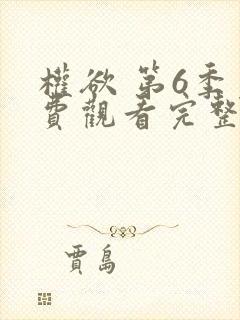 權欲 第6季
費觀看完整
賈島